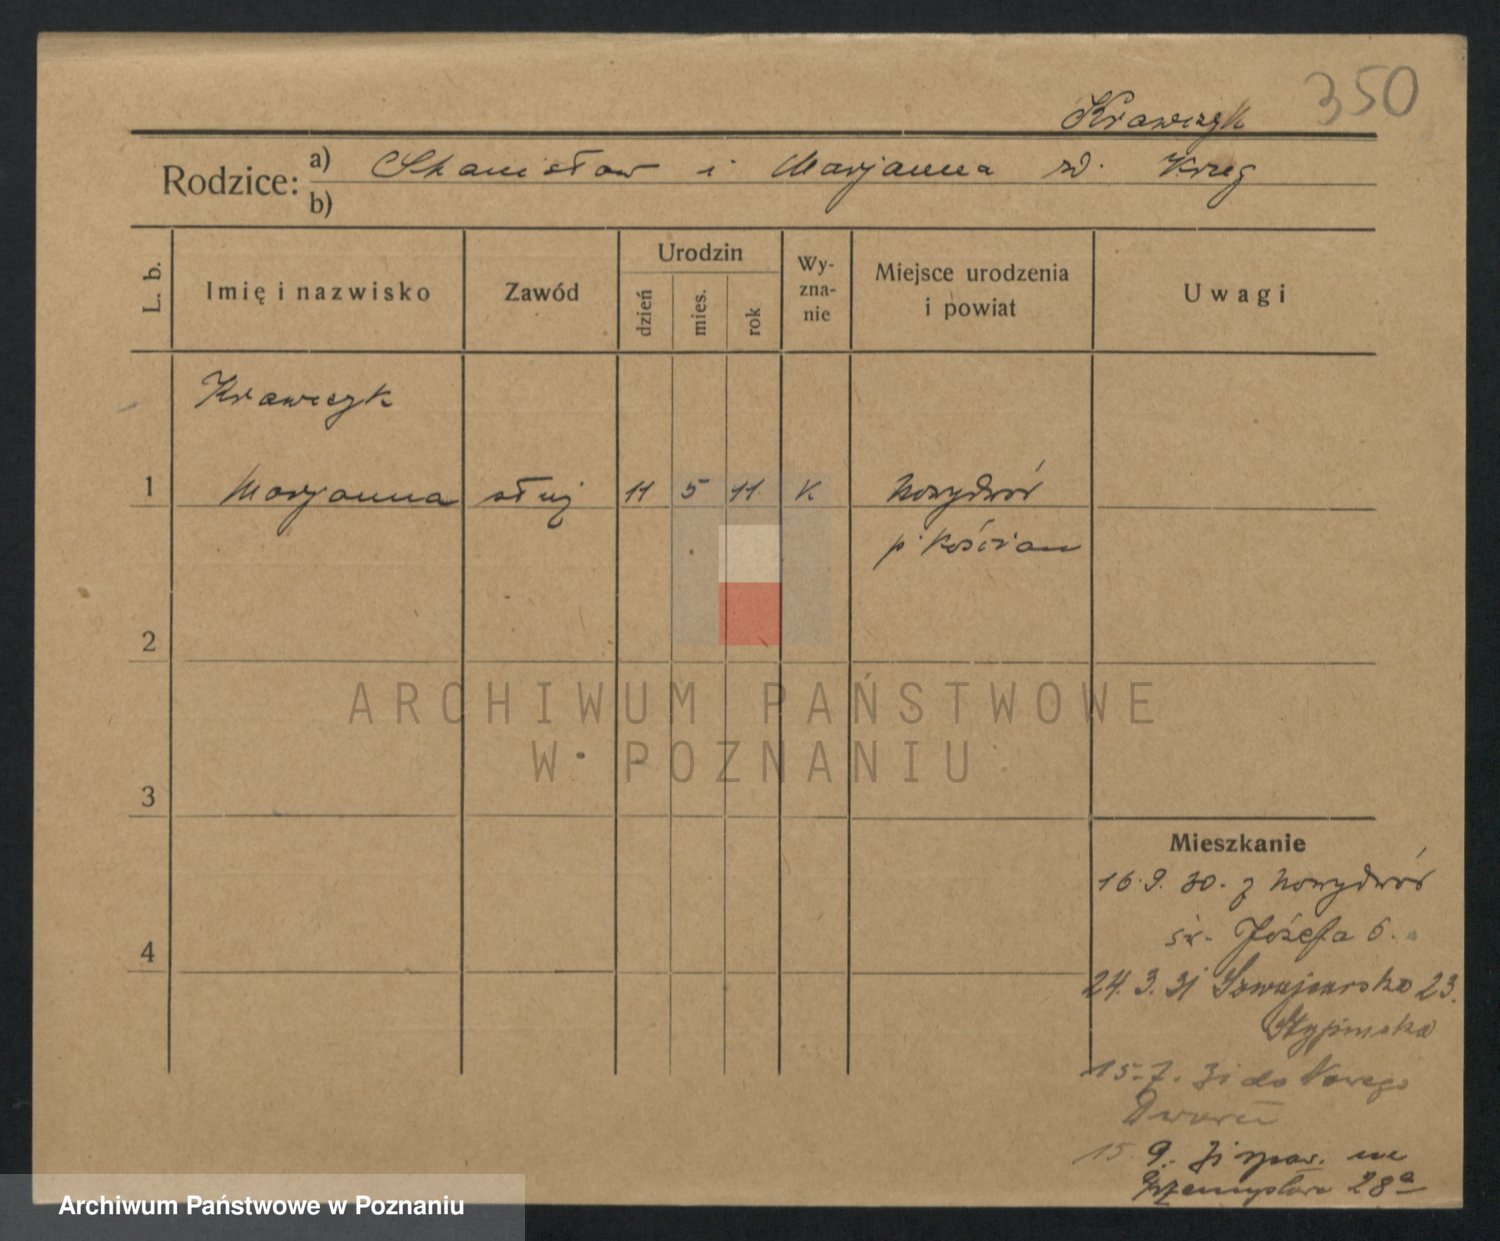 350
Krawczyk
Rodzice: a) Stanisław i Marjanna zd. Krzeg
b)
L. b.
Imię i nazwisko
Zawód
Urodzin
dzień
mies.
rok
Wy-
zna-
nie
Miejsce urodzenia
i powiat
Uwagi
Krawczyk
1 Marjanna służ 11 5 11 k. Nowydwór
p. Kościan
2
3
4
Mieszkanie
16.9.30. z Nowydwór
św. Józefa 6.
24.3.31 Szwajcarska 23.
15.7. 31 do Nowego
Dworu
15 9. 31 spow. na
Przemysłowa 28a
ARCHIWUM PAŃSTWOWE
W POZNANIU
Archiwum Państwowe w Poznaniu